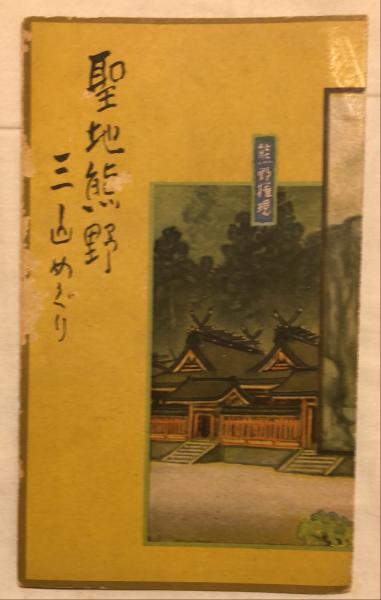 聖地熊野
三山めぐり
熊野権現